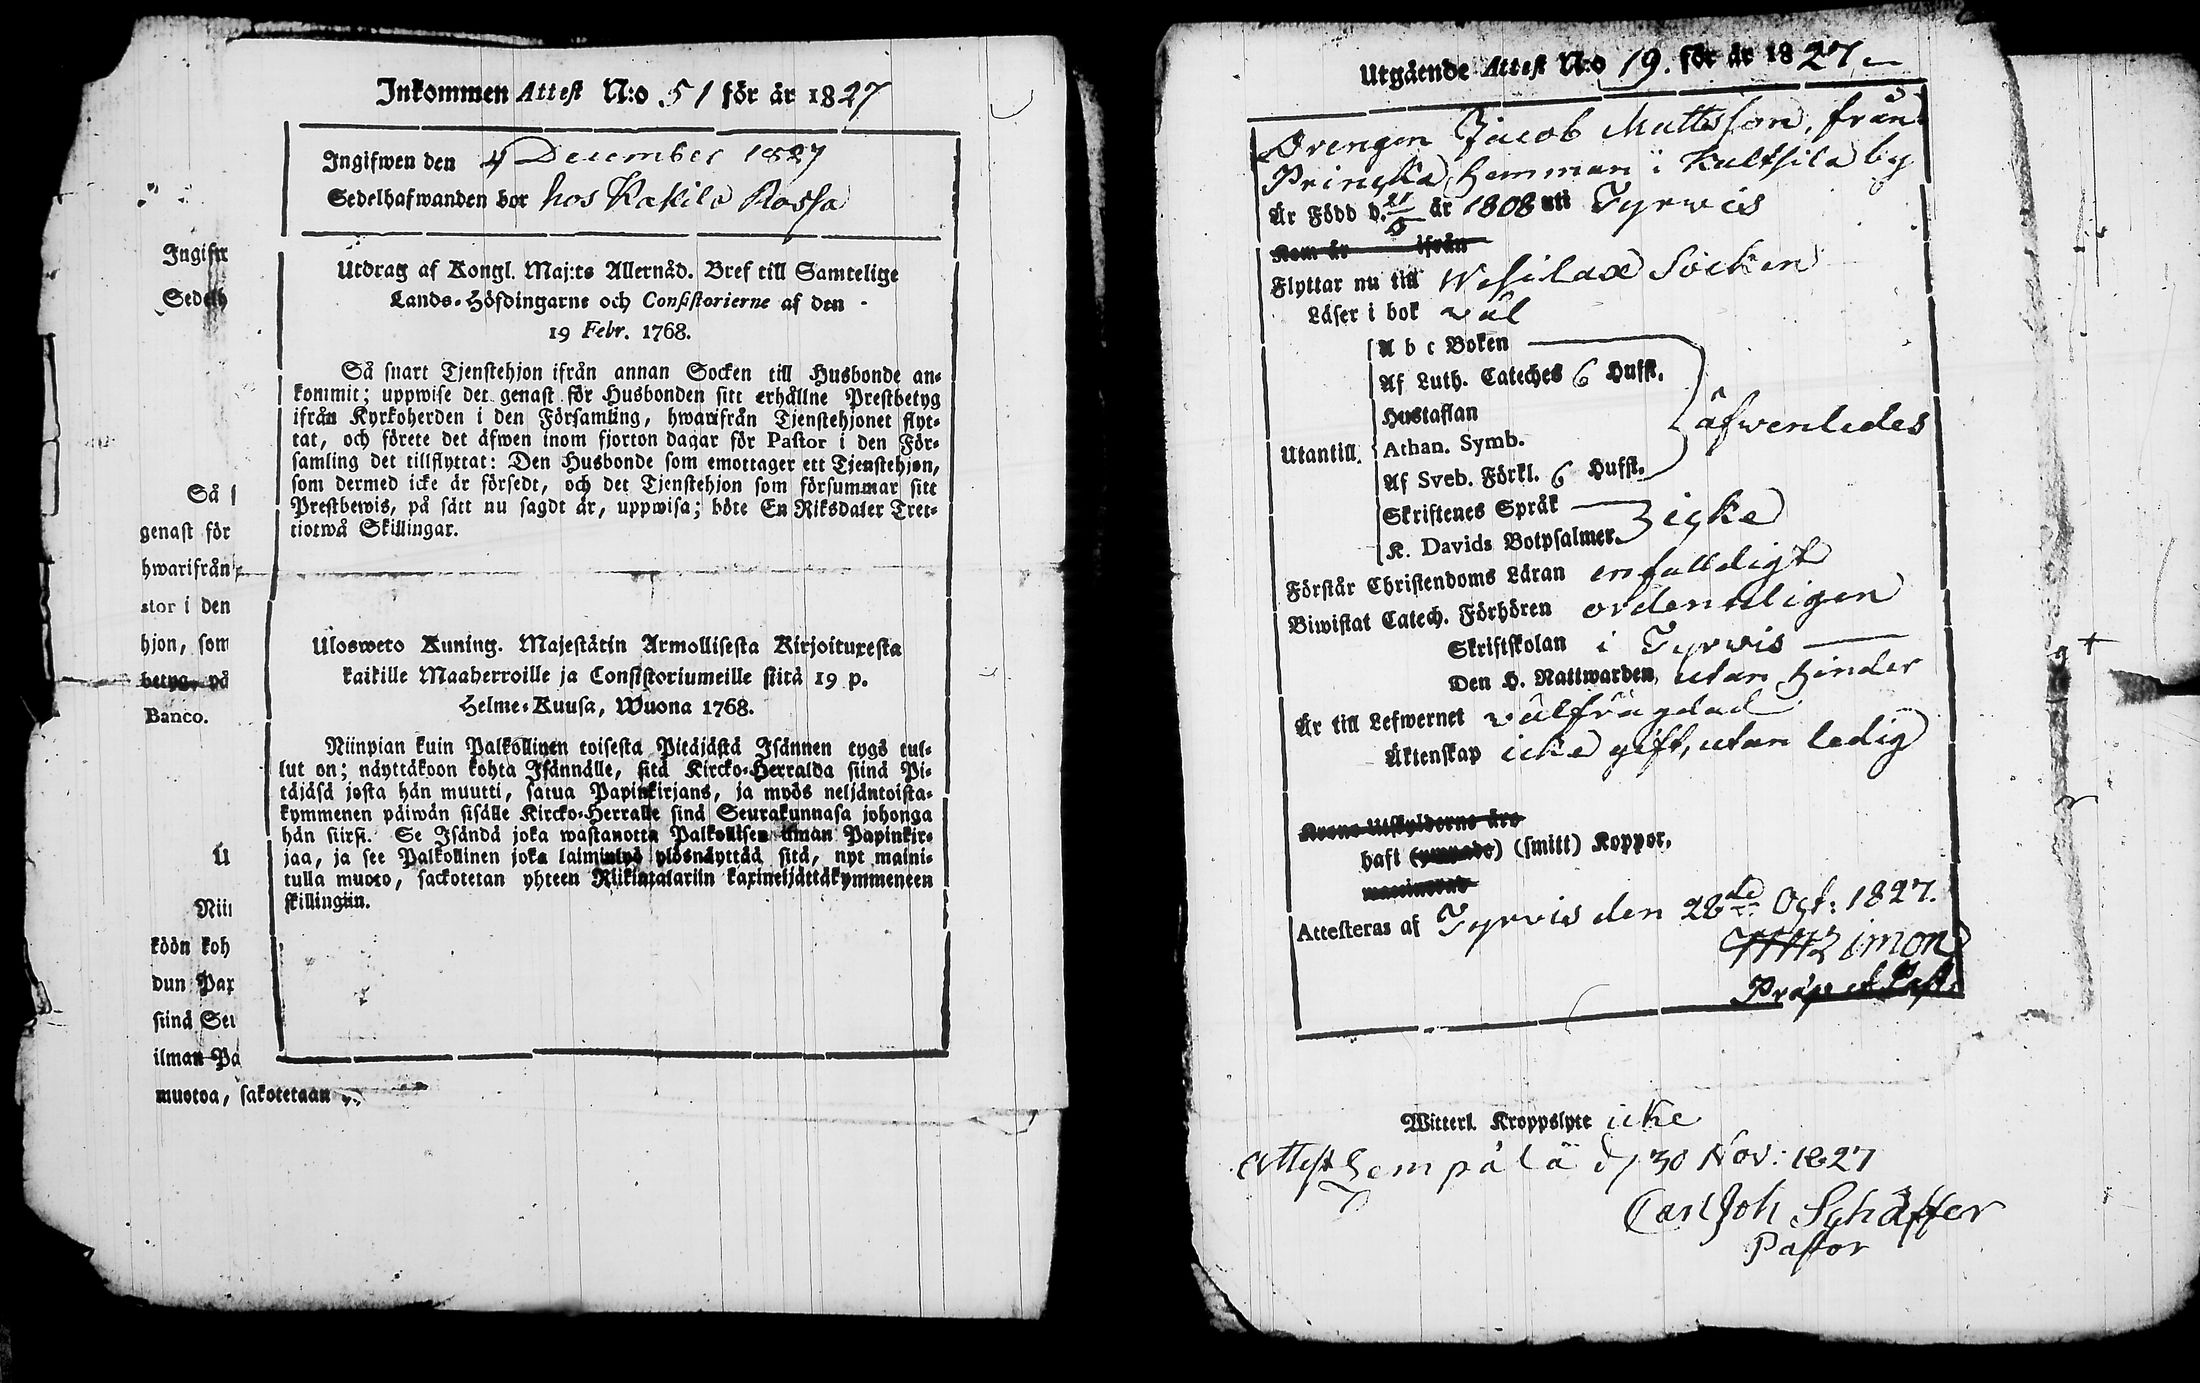 Inkommen Attest N:o 51 för år 1827
Ingifwen den 4 December 1827
Sedelhafwanden bor hos Kakila Rossa
Utdrag af Kongl. Maj:ts Allernåd. Bref till Samtelige
Lands-Höfdingarne och Consistorierne af den
19 Febr. 1768.
Så snart Tjenstehjon ifrån annan Socken till Husbonde an-
kommit; uppwise det genast för Husbonden sitt erhållne Prestbetyg
ifrån Kyrkoherden i den Församling, hwarifrån Tjenstehjonet flyt-
tat, och förete det äfwen inom fjorton dagar för Pastor i den För-
samling det tillflyttat: Den Husbonde som emottager ett Tjenstehjon,
som dermed icke är försedt, och det Tjenstehjon som försummar sitt
Prestbewis, på sätt nu sagdt är, uppwisa; böte En Riksdaler Tret-
tiotwå Skillingar.
Ulosweto Kuning. Majestätin Armollisesta Kirjoituxesta
kaikille Maaherroille ja Consistoriumeille siitä 19 p.
Helme-Kuusa, Wuona 1768.
Niinpian kuin Palkollinen toisesta Pitäjästä Isännen tygö tul-
lut on; näyttäkoon kohta Isännälle, sitä Kircko-Herralda siinä Pi-
täjäsä josta hän muutti, saatua Papinkirjans, ja myös neljäntoista-
kymmenen päiwän sisälle Kircko-Herralle sinä Seurakunnasa johonga
hän siirsi. Se Isändä joka wastanotta Palkollisen ilman Papinkir-
jaa, ja see Palkollinen joka laiminlyö ylösnäyttää sitä, nyt maini-
tulla muoto, sackotetan yhteen Riikintalariin kaxineljättäkymmeneen
skillingiin.
Ingifw
Sedelh
Så s
genast för
hwarifrån
stor i den
hjon, som
betyg, på
Banco.
U
Niin
köön koh
dun Pap
siinä Seu
ilman Pa
muotoa, sakotetaan
Utgående Attest N:o 19. för år 1827
Drengen Jacob Mattsson, från
Princkä hemman i Kultsila by
Är Född d. 21/5 år 1808 uti Tyrwis
Kom år ifrån
Flyttar nu till Wesilax Socken
Läser i bok wäl
Utantill.
A b c Boken
Af Luth. Cateches 6 Hufst.
Hustaflan
Athan. Symb.
Af Sveb. Förkl. 6 Hufst.
äfwenledes
Skriftenes Språk
K. Davids Botpsalmer
icke
Förstår Christendoms Läran enfalldigt
Biwistat Catech. Förhören ordenteligen
Skriftskolan i Tyrwis
Den H. Nattwarden utan hinder
Är till Lefwernet wälfrägdad
Äktenskap icke gift, utan ledig
Krono Utskylderne äro
haft (ympade) (smitt) Koppor.
vaccinerad
Attesteras af Tyrwis den 28de Oct: 1827.
Simon
Præp. et Past.
Witterl. Kroppslyte icke
Attest Lempälä d. 30 Nov: 1827
Carl Joh Schäffer
Pastor